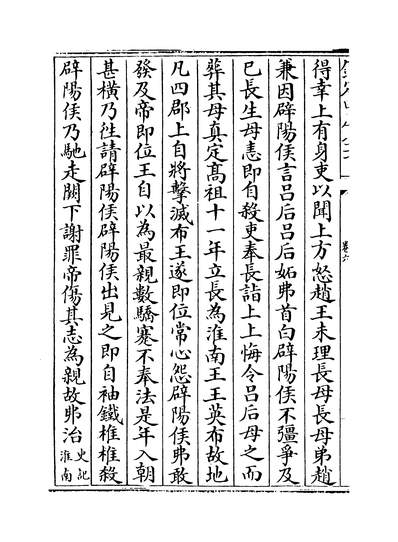 得幸上有身吏以聞上方怒趙王未理長母長母弟趙
兼因辟陽侯言呂后呂后妬弗首白辟陽侯不彊爭及
已長生母恚即自殺吏奉長詣上上悔令呂后母之而
葬其母真定高祖十一年立長為淮南王王英布故地
凡四郡上自將擊滅布王遂即位常心怨辟陽侯弗敢
發及帝即位王自以為最親數驕蹇不奉法是年入朝
甚横乃徃請辟陽侯辟陽侯出見之即自袖鐵椎椎殺
辟陽侯乃馳走闕下謝罪帝傷其志為親故弗治史記
淮南